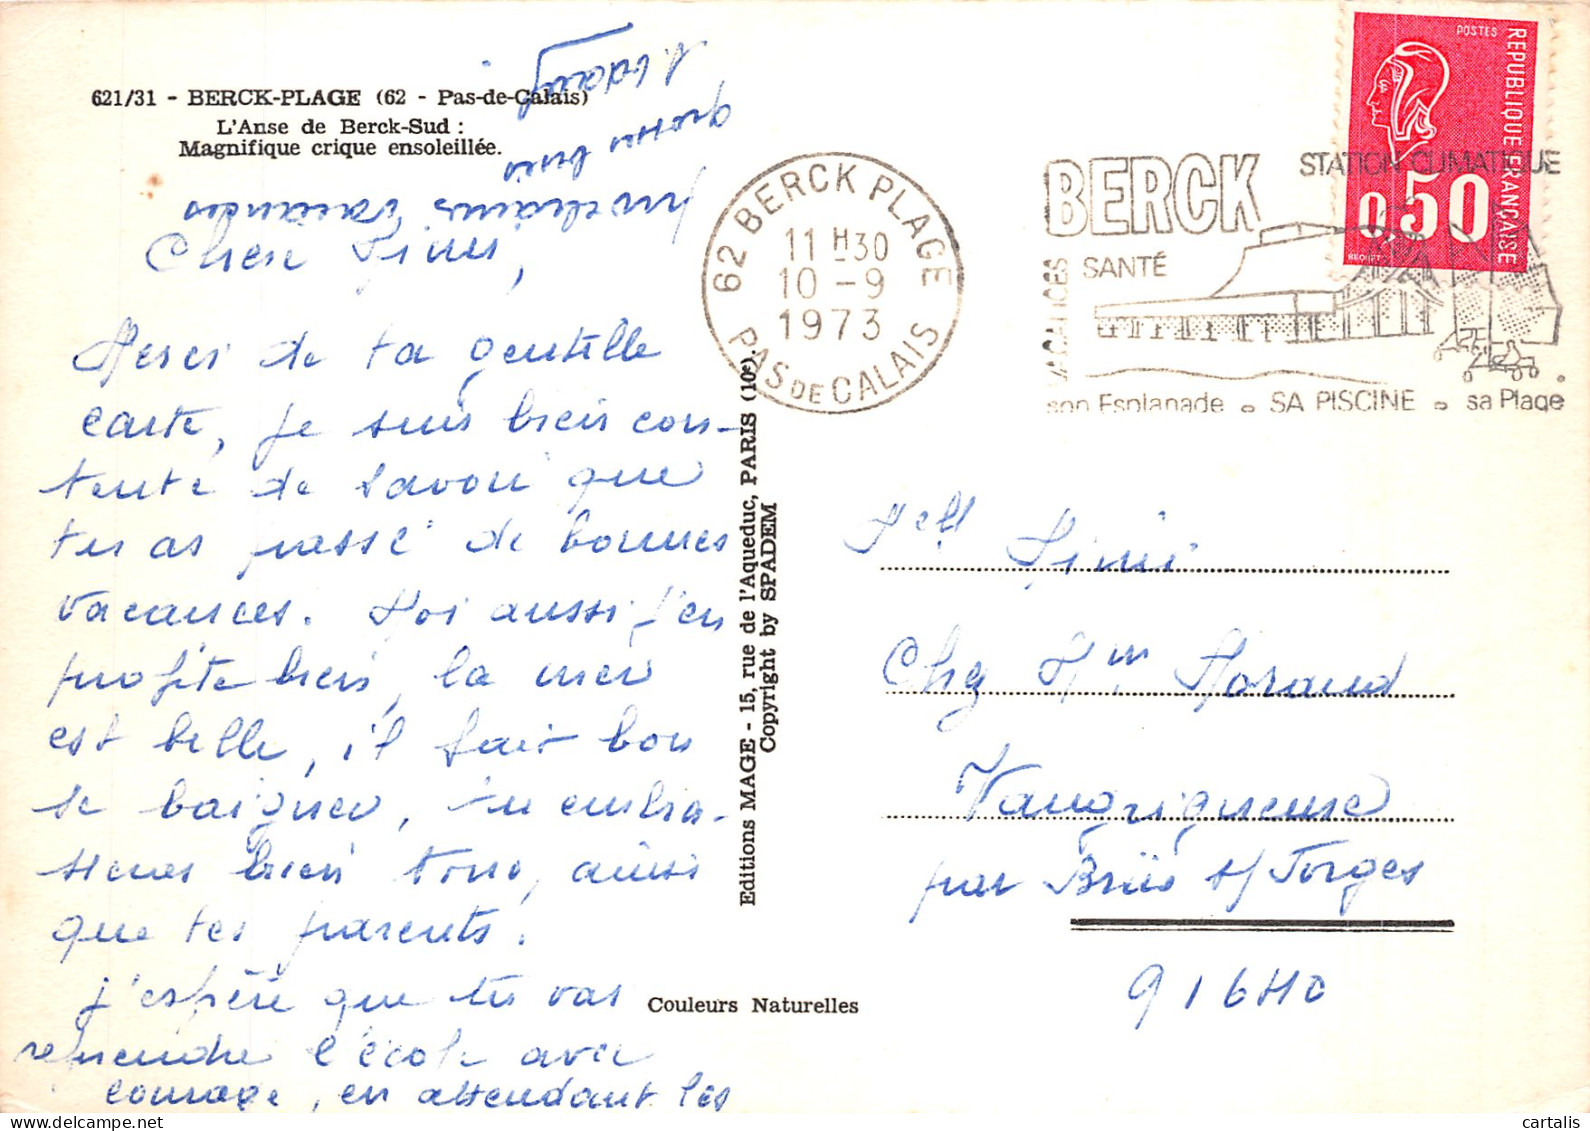 621/31 - BERCK-PLAGE (62 - Pas-de-Calais)
L'Anse de Berck-Sud :
Magnifique crique ensoleillée.
Merci de ta gentille
carte, je suis bien con-
tente de savoir que
tu as passé de bonnes
vacances. Moi aussi j'en
profite bien, la mer
est belle, il fait bon
se baigner,
bien tous, ainsi
que tes parents.
j'espère que tu vas
reprendre l'école avec
courage, en attendant les
prochaines vacances
grosses bises
Editions MAGE - 15, rue de l'Aqueduc, PARIS (10e).
Copyright by SPADEM
Couleurs Naturelles
62 BERCK PLAGE
11 H30
10 - 9
1973
PAS DE CALAIS
BERCK
STATION CLIMATIQUE
SANTÉ
VACANCES
son Esplanade SA PISCINE sa Plage
POSTES
REPUBLIQUE FRANÇAISE
0,50
BEQUET
Melle
Chez Mme Morand
Vaugrigneuse
par Briis s/ Forges
91640